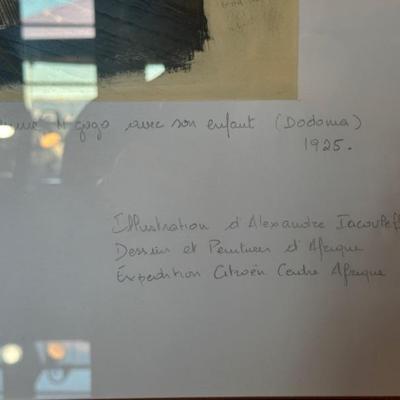 M'gogo avec son enfant (Dodoma)
1925.
Illustration d'Alexandre Iacovleff
Dessins et Peintures d'Afrique
Expédition Citroën Centre Afrique